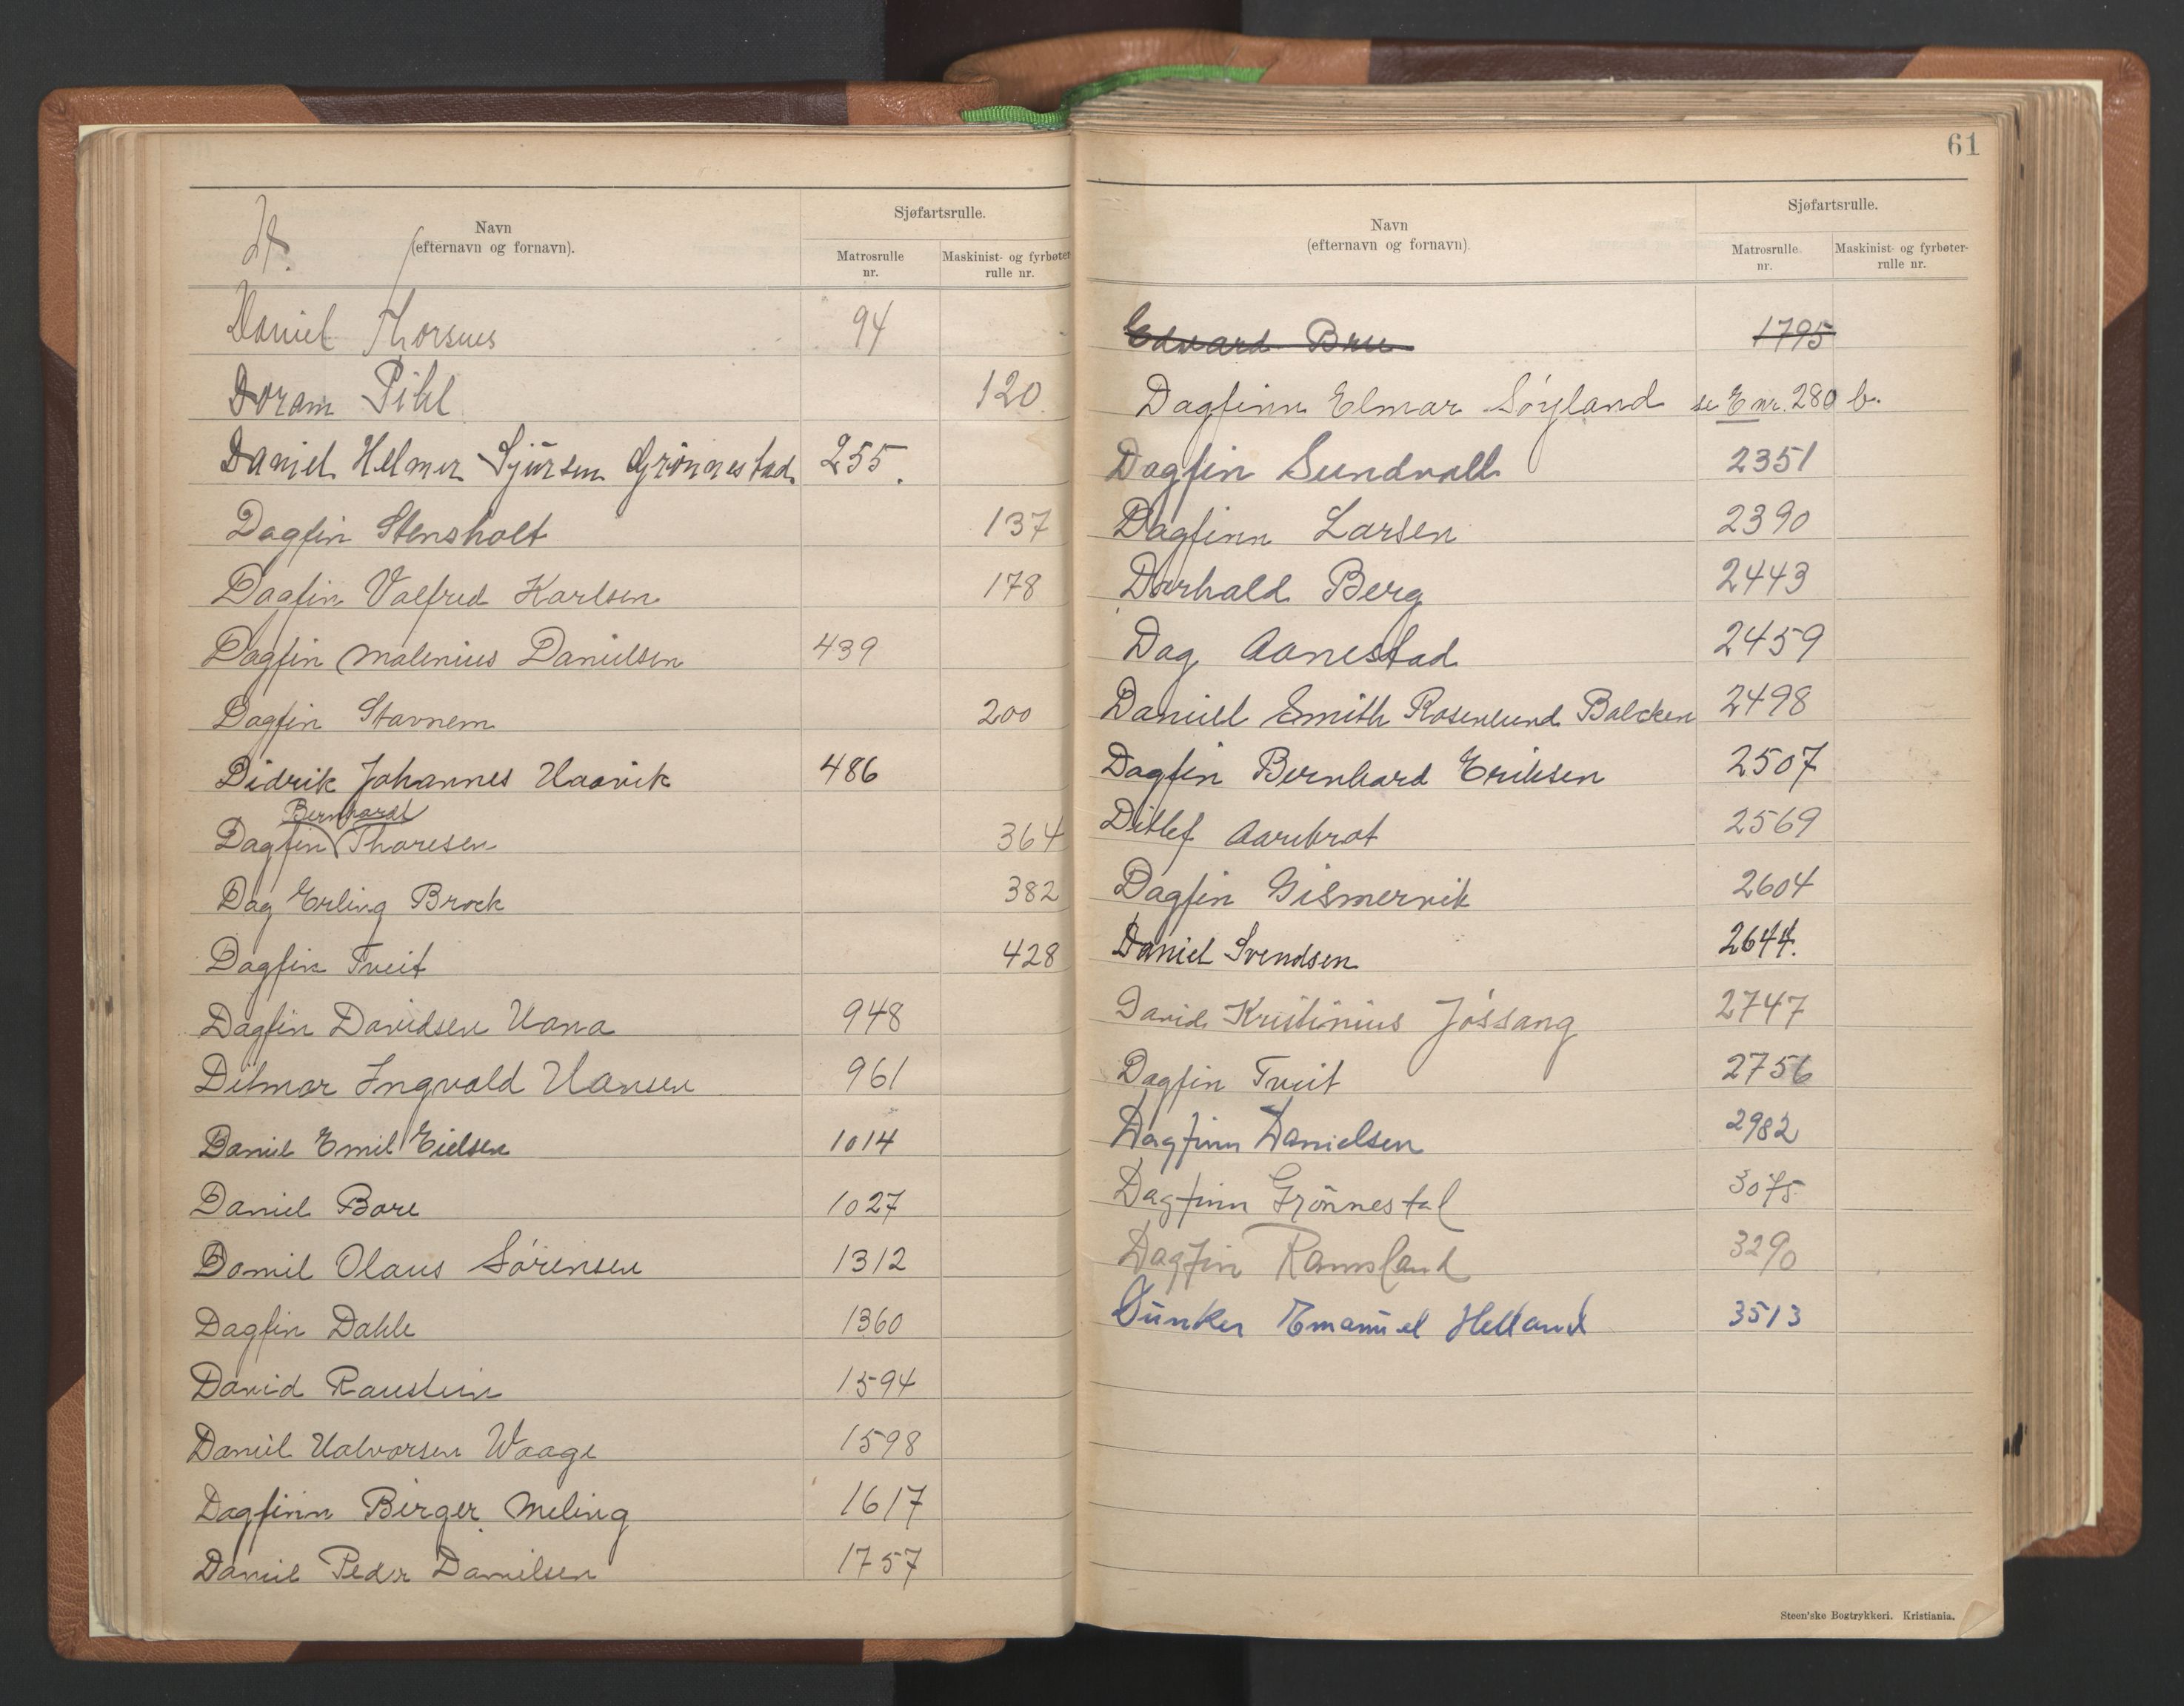 Navn
(efternavn og fornavn).
Sjøfartsrulle.
Matrosrulle nr.
Maskinist- og fyrbøter rulle nr.
Daniel Thorsnes 94
Doram Pihl 120
Daniel Helmer Sjursen Grønnestad. 255.
Dagfin Stensholt 137
Dagfin Valfred Karlsen 178
Dagfin Malenius Danielsen 439
Dagfin Stavnem 200
Didrik Johannes Haavik 486
Bernhard
Dagfin Thoresen 364
Dag Erling Brock 382
Dagfin Tveit 428
Dagfin Davidsen Hana 948
Ditmar Ingvald Hansen 961
Daniel Emil Eielsen 1014
Daniel Bore 1027
Daniel Olaus Sörensen 1312
Dagfin Dahle 1360
David Raustein 1594
Daniel Halvorsen Waage 1598
Dagfinn Birger Meling 1617
Daniel Peder Danielsen 1757
61
Navn
(efternavn og fornavn).
Sjøfartsrulle.
Matrosrulle. nr.
Maskinist- og fyrbøter- rulle nr.
Edvard Bru 1795
Dagfinn Elmar Söyland se E nr. 280 b.
Dagfin Sundvall 2351
Dagfinn Larsen 2390
Berg 2443
Dag Aanestad 2459
Daniel Smith Rosenlund Balchen 2498
Dagfin Bernhard Eriksen 2507
Ditlef Aarebrot 2569
Dagfin Gismervik 2604
Daniel Svendsen 2644.
David Kristinius Jössang 2747
Dagfin Tveit 2756
Dagfinn Danielsen 2982
Dagfinn Grönnestal 3075
Dagfin Ramsland 3290
Dunker Emanuel Helland 3513
Steen'ske Bogtrykkeri. Kristiania.